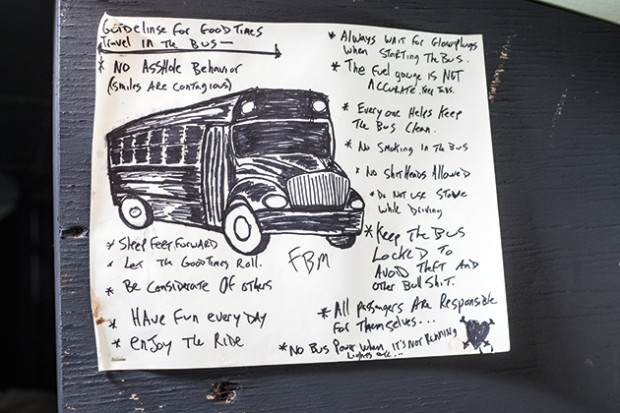 Guidelinse for Good Times
Travel In The Bus—
* No Asshole Behavior
(smiles Are contagious)
* Sleep Feet Forward
* Let The Good Times Roll.
* Be Considerate Of others
* Have Fun everyday
* enjoy The Ride
FBM
* Always wait for Glowplugs
when Starting The Bus.
* The Fuel gauge is NOT
Accurate.
* Everyone Helps Keep
The Bus Clean.
* No Smoking In The Bus
* No Shit Heads Allowed
* Do Not use Stove
while Driving
* Keep The Bus
Locked To
Avoid Theft And
other Bull Shit.
* All passengers Are Responsible
For Themselves...
* No Bus Power When, it's Not Running
Lights etc...